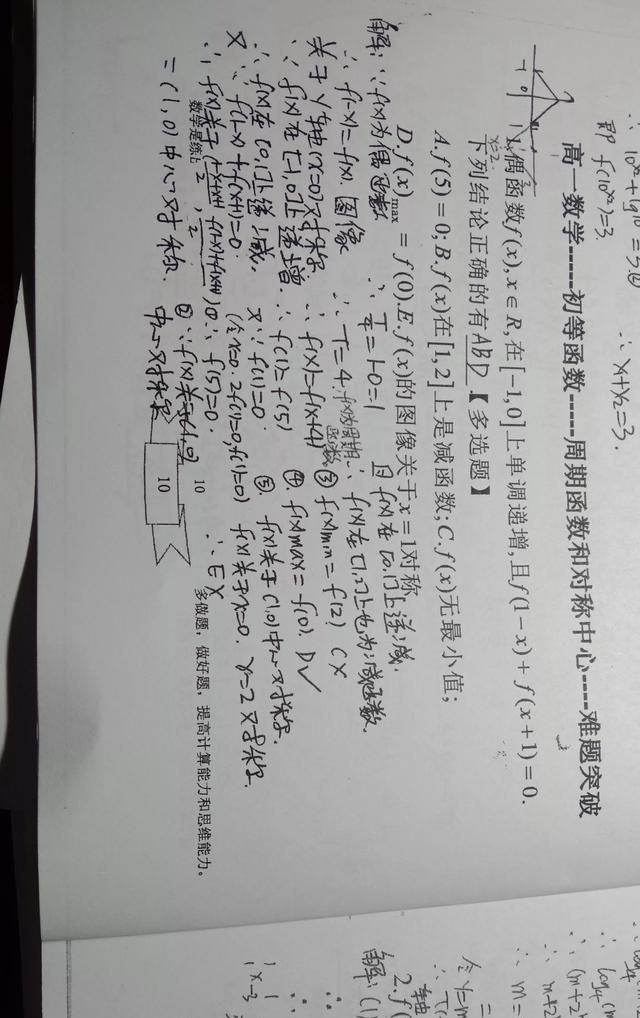 ∴ x₁+x₂=3.
即 f(10^x₂)=3.
高一数学-----初等函数-----周期函数和对称中心----难题突破
1.偶函数f(x),x∈R,在[-1,0]上单调递增,且f(1-x)+f(x+1)=0.
下列结论正确的有ABD【多选题】
x=2
A.f(5)=0;B.f(x)在[1,2]上是减函数;C.f(x)无最小值;
D.f(x)max=f(0).E.f(x)的图像关于x=1对称
解:∵f(x)为偶函数
∴f(-x)=f(x).图像
关于y轴(x=0)对称.
∵f(x)在[-1,0]上递增.
∴f(x)在[0,1]上递减.
又∵f(1-x)+f(x+1)=0.
∴f(x)关于(1-x+x+1/2, f(1-x)+f(x+1)/2)
=(1,0)中心对称.
∴T/4=1-0=1
∴T=4.
f(x)为周期函数
∴f(x)=f(x+4)
∴f(1)=f(5)
又∵f(1)=0.
(令x=0.2f(1)=0,f(1)=0)
∴f(5)=0.
②∵f(x)关于(1,0)
中心对称
且f(x)在[0,1]上递减.
∴f(x)在[1,2]上也为减函数.
③f(x)min=f(2) C×
④.f(x)max=f(0). D√
⑤.f(x)关于(1,0)中心对称.
f(x)关于x=0. x=2对称.
∴E×
数学是练
10
多做题,做好题,提高计算能力和思维能力。
10
解:(1)
2.f(